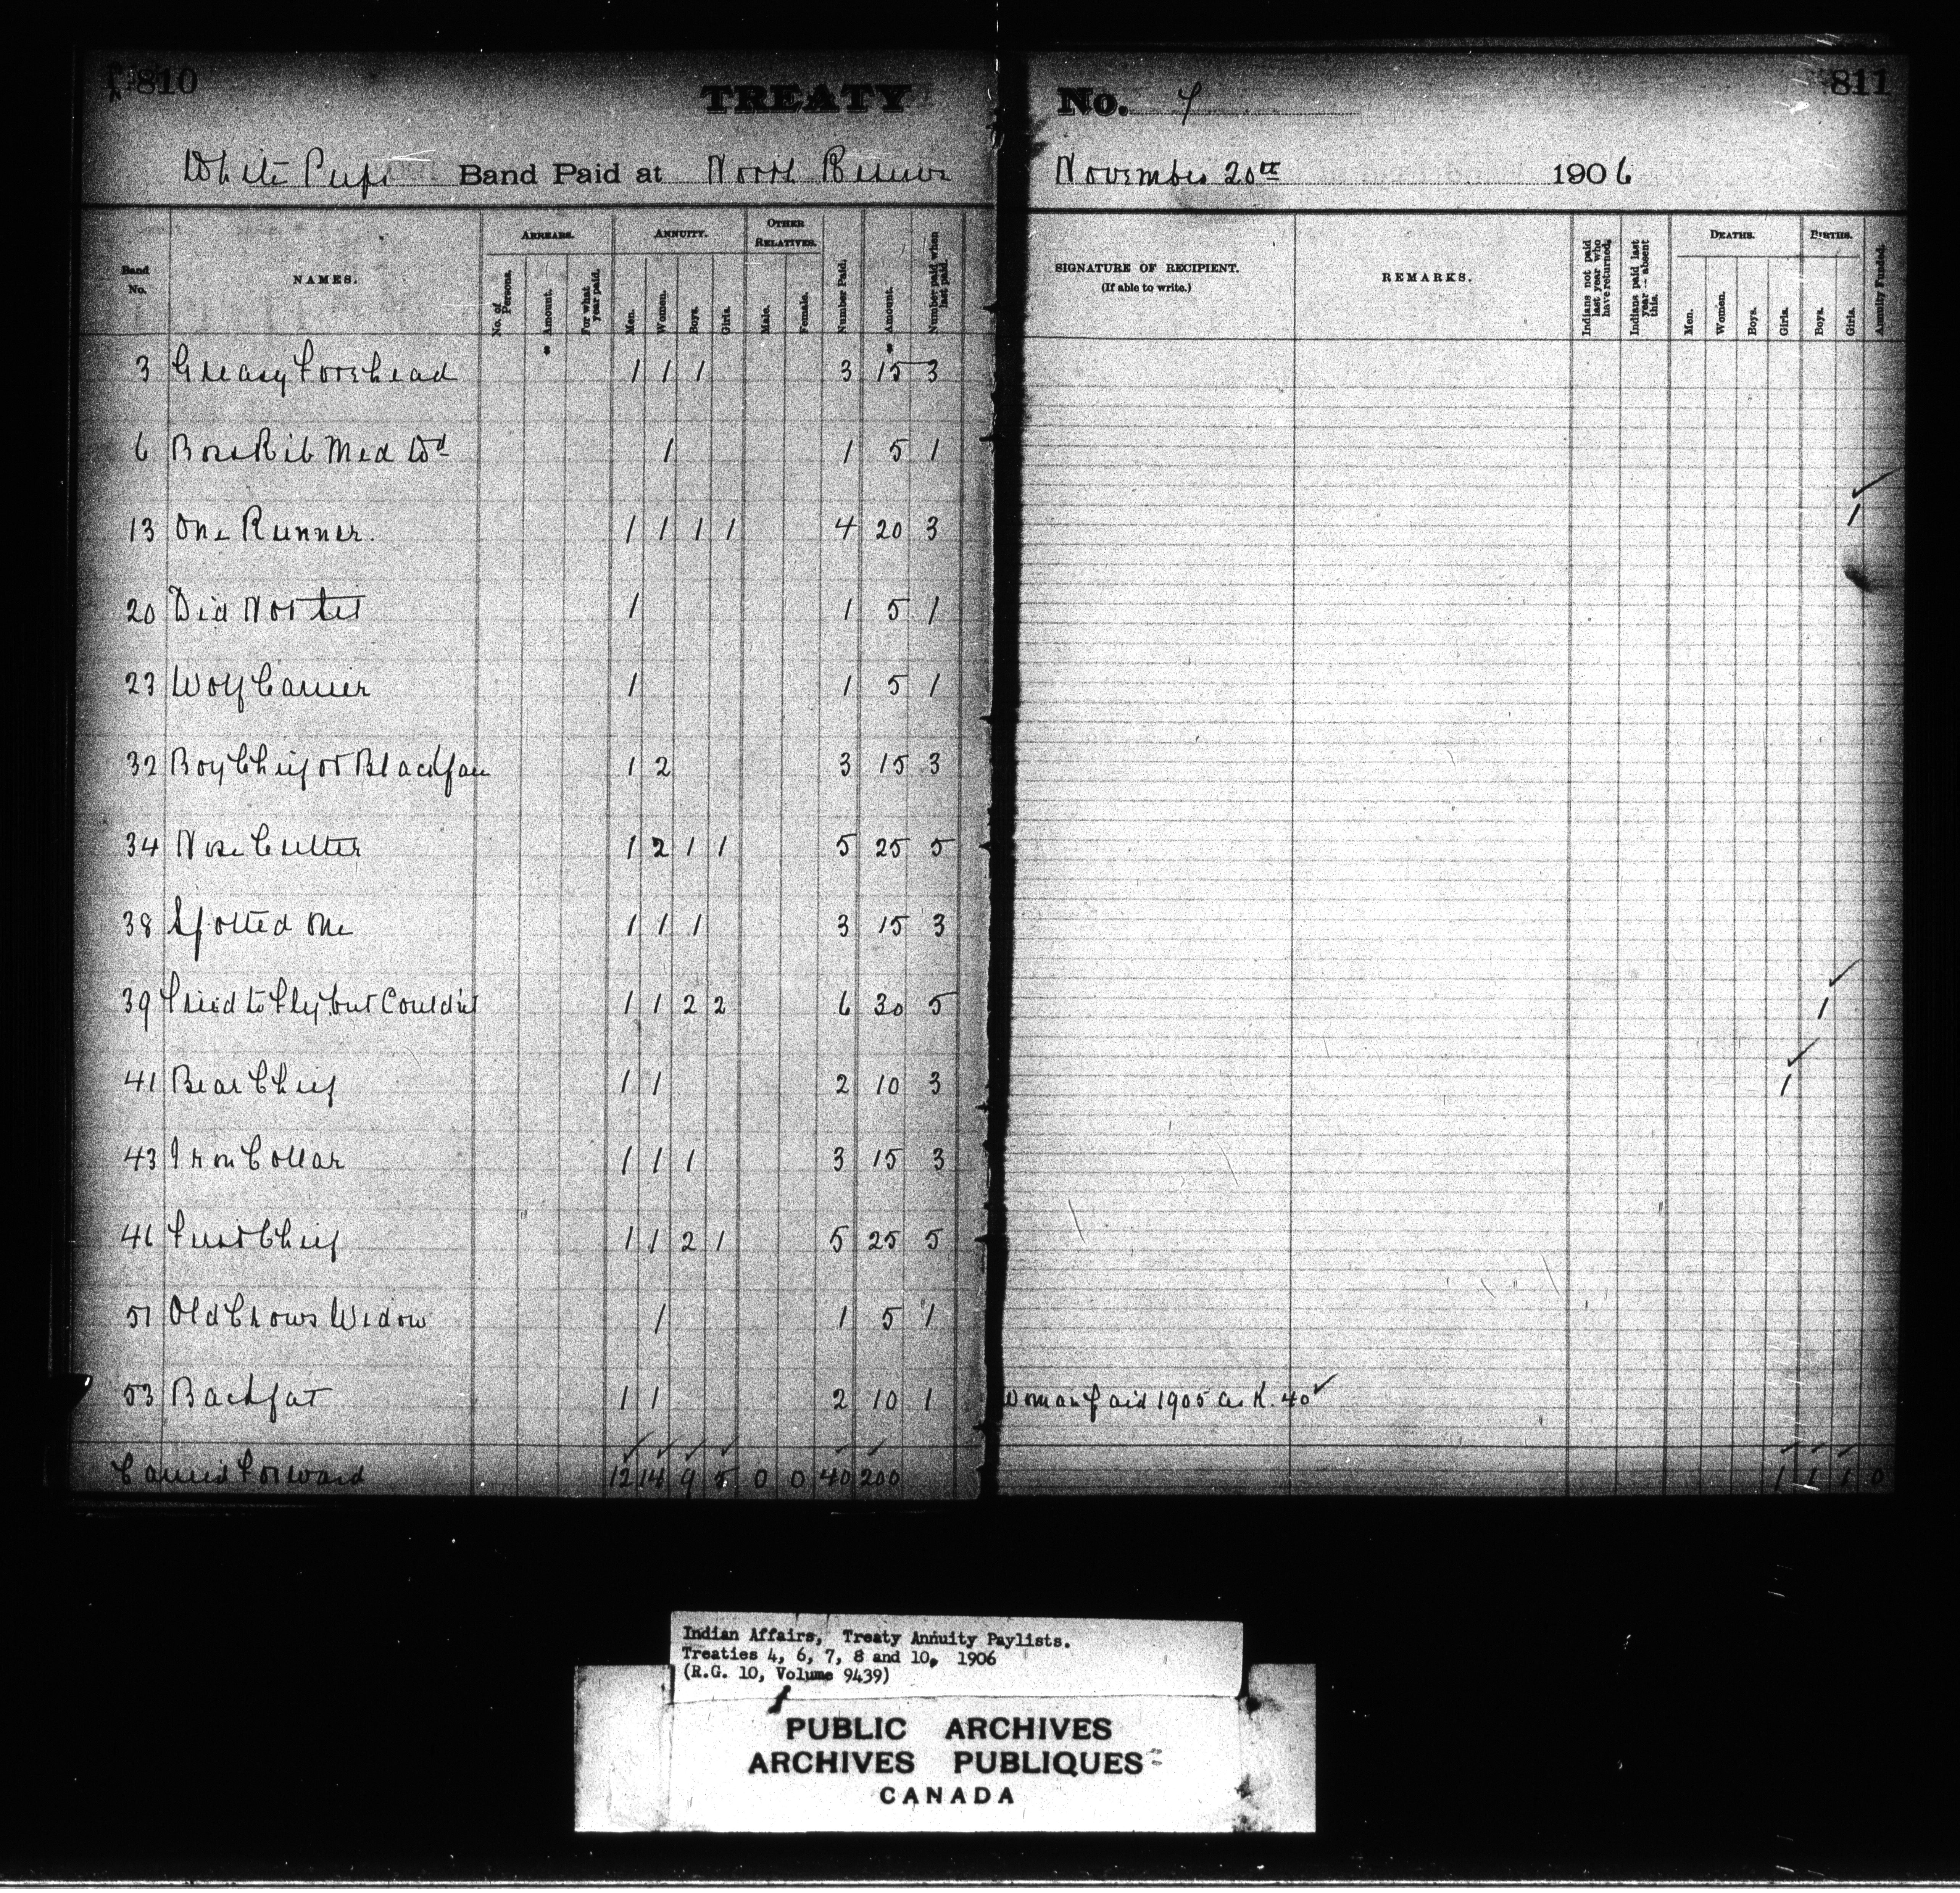 810
TREATY
No. 7
811
White Pups Band Paid at North Reserve
November 20th 1906
Band No.
NAMES.
ARREARS.
No. of Persons.
Amount.
For what year paid.
ANNUITY.
Men.
Women.
Boys.
Girls.
OTHER RELATIVES.
Male.
Female.
Number Paid.
Amount.
Number paid when last paid.
SIGNATURE OF RECIPIENT.
(If able to write.)
REMARKS.
Indians not paid last year who have returned.
Indians paid last year — absent this.
DEATHS.
Men.
Women.
Boys.
Girls.
BIRTHS.
Boys.
Girls.
Annuity Funded.
3 Greasy Forehead 1 1 1 3 15 3
6 Bone Rib Med Wd 1 1 5 1
13 One Runner. 1 1 1 1 4 20 3 1
20 Did Not 1 1 5 1
23 Wolf Carrier 1 1 5 1
32 Boy Chief or Blackface 1 2 3 15 3
34 Nose Cutter 1 2 1 1 5 25 5
38 Spotted One 1 1 1 3 15 3
39 Tried to Fly but Couldn't 1 1 2 2 6 30 5 1
41 Bear Chief 1 1 2 10 3 1
43 Iron Collar 1 1 1 3 15 3
46 First Chief 1 1 2 1 5 25 5
51 Old Crows Widow 1 1 5 1
53 Backfat 1 1 2 10 1 Woman paid 1905 as K. 40
Carried Forward 12 14 9 5 0 0 40 200 1 1 1 0
Indian Affairs, Treaty Annuity Paylists.
Treaties 4, 6, 7, 8 and 10, 1906
(R.G. 10, Volume 9439)
PUBLIC ARCHIVES
ARCHIVES PUBLIQUES
CANADA